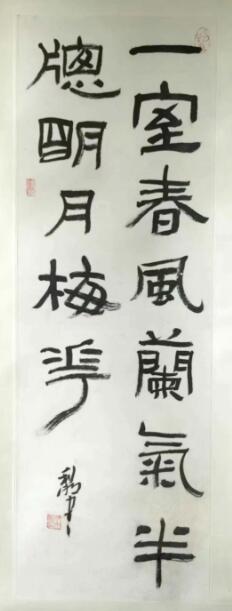 一室春風蘭氣半
牕明月梅花